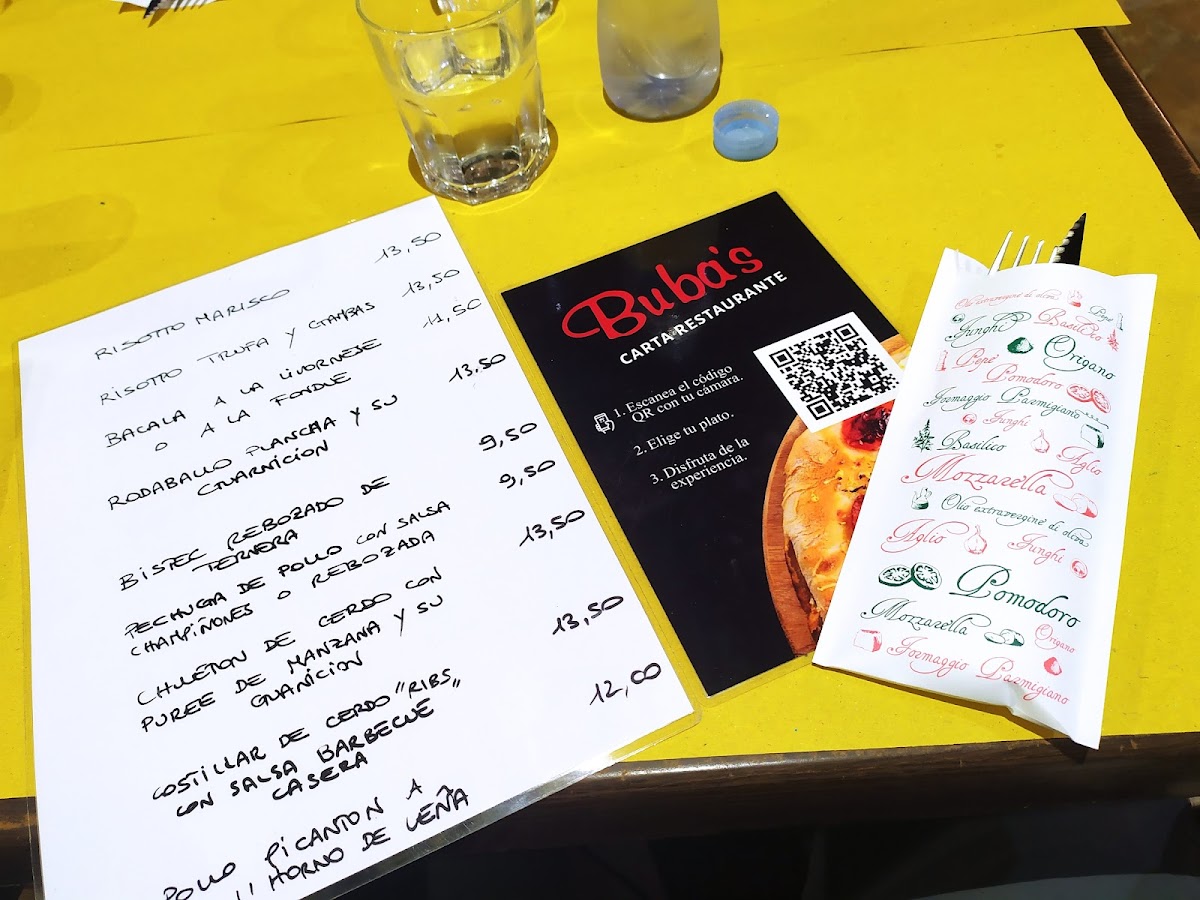 RISOTTO MARISCO 13,50
RISOTTO TRUFA Y GAMBAS 13,50
BACALA A LA LIVORNESE 11,50
O A LA FONDUE
RODABALLO PLANCHA Y SU 13,50
GUARNICION
BISTEC REBOZADO DE 9,50
TERNERA
PECHUGA DE POLLO CON SALSA 9,50
CHAMPIÑONES O REBOZADA
CHULETON DE CERDO CON 13,50
PUREE DE MANZANA Y SU
GUANICION
COSTILLAR DE CERDO "RIBS" 13,50
CON SALSA BARBECUE
CASERA
POLLO PICANTON A 12,00
HORNO DE LEÑA
Buba's
CARTA RESTAURANTE
1. Escanea el código
QR con tu cámara.
2. Elige tu plato.
3. Disfruta de la
experiencia.
Olio extravergine di oliva
Pepe
Funghi Basilico
Origano
Pepe
Pomodoro
Formaggio Parmigiano
Funghi
Basilico
Aglio
Mozzarella
Olio extravergine di oliva
Aglio Funghi
Pomodoro
Mozzarella
Origano
Formaggio Parmigiano